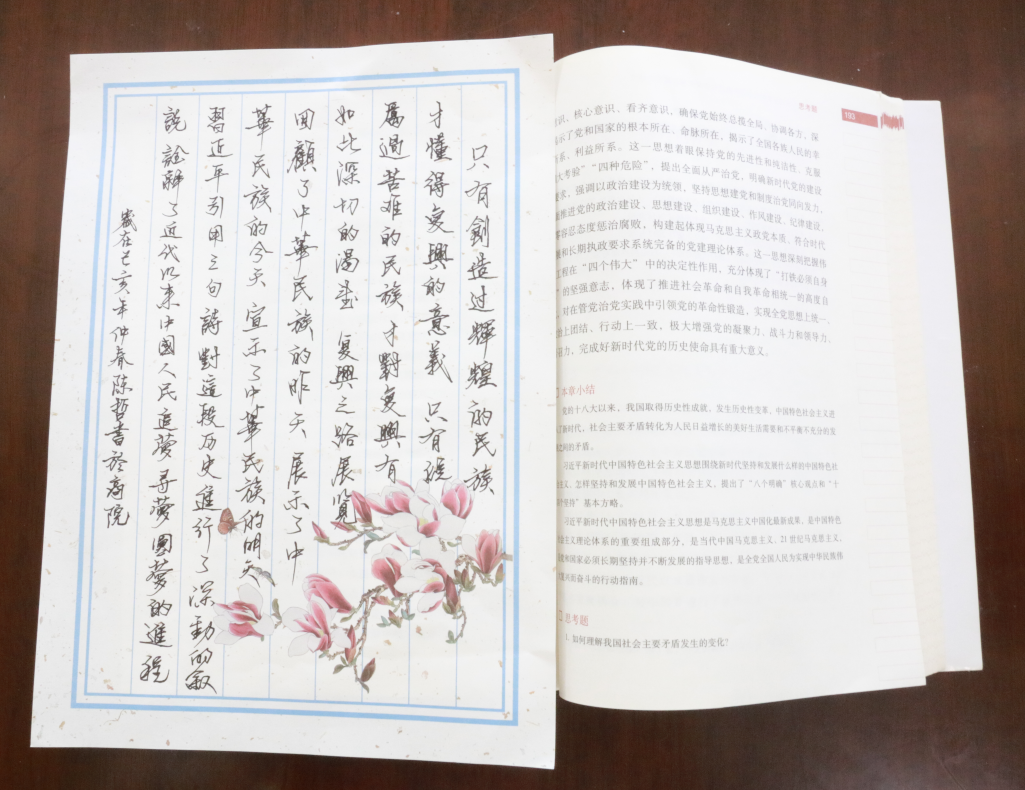 只有創造过輝煌的民族
才懂得复興的意義 只有
過苦难的民族才對复興有
如此深切的渴望 复興之路展览
回顧了中華民族的昨天 展示了中
華民族的今天 宣示了中華民族的明天
習近平引用三句詩對這段历史進行了深動的叙
説 詮釋了近代以来中國人民追夢寻夢圓夢的進程
歲在己亥年仲春陈哲書於商院
思考题 193
识、核心意识、看齐意识，确保党始终总揽全局、协调各方，保
示了党和国家的根本所在、命脉所在，揭示了全国各族人民的幸
系、利益所系。这一思想着眼保持党的先进性和纯洁性，克服
大考验”“四种危险”，提出全面从严治党，明确新时代党的建设
求，强调以政治建设为统领，坚持思想建党和制度治党同向发力，
推进党的政治建设、思想建设、组织建设、作风建设、纪律建设，
零容忍态度惩治腐败，构建起体现马克思主义政党本质、符合时代
展和长期执政要求系统完备的党建理论体系。这一思想深刻把握伟
工程在“四个伟大”中的决定性作用，充分体现了“打铁必须自身
”的坚强意志，体现了推进社会革命和自我革命相统一的高度自
，对在管党治党实践中引领党的革命性锻造，实现全党思想上统一、
治上团结、行动上一致，极大增强党的凝聚力、战斗力和领导力、
力，完成好新时代党的历史使命具有重大意义。
本章小结
党的十八大以来，我国取得历史性成就，发生历史性变革，中国特色社会主义进
了新时代，社会主要矛盾转化为人民日益增长的美好生活需要和不平衡不充分的发
之间的矛盾。
习近平新时代中国特色社会主义思想围绕新时代坚持和发展什么样的中国特色社
主义、怎样坚持和发展中国特色社会主义，提出了“八个明确”核心观点和“十
个坚持”基本方略。
习近平新时代中国特色社会主义思想是马克思主义中国化最新成果，是中国特色
会主义理论体系的重要组成部分，是当代中国马克思主义、21世纪马克思主义，
党和国家必须长期坚持并不断发展的指导思想，是全党全国人民为实现中华民族伟
复兴而奋斗的行动指南。
思考题
1. 如何理解我国社会主要矛盾发生的变化？